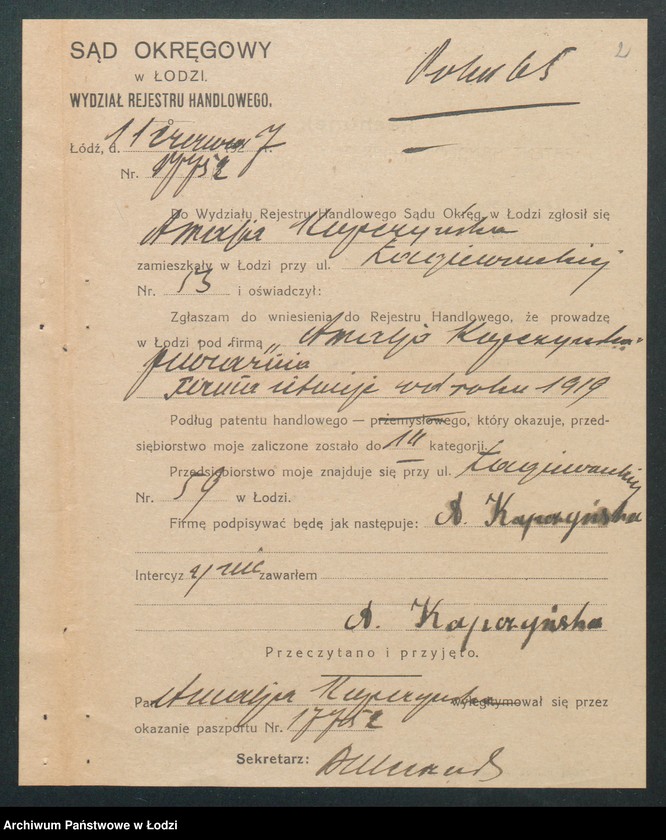 2
SĄD OKRĘGOWY
w ŁODZI.
WYDZIAŁ REJESTRU HANDLOWEGO.
65
Łódź, d. 11 czerwca 192 7 r.
Nr. 17752
Do Wydziału Rejestru Handlowego Sądu Okręg. w Łodzi zgłosił się
Amalja Kapczyńska
zamieszkały w Łodzi przy ul. Łagiewnickiej
Nr. 53 i oświadczył:
Zgłaszam do wniesienia do Rejestru Handlowego, że prowadzę
w Łodzi pod firmą „Amalja Kapczyńska"
piwiarnia
Firma istnieje od roku 1919
Podług patentu handlowego — przemysłowego, który okazuje, przed-
siębiorstwo moje zaliczone zostało do III kategorji.
Przedsiębiorstwo moje znajduje się przy ul. Łagiewnickiej
Nr. 59 w Łodzi.
Firmę podpisywać będę jak następuje: A. Kapczyńska
Intercyz y nie zawarłem
A. Kapczyńska
Przeczytano i przyjęto.
Pan Amalja Kapczyńska wylegitymował się przez
okazanie paszportu Nr. 17752
Sekretarz:
Archiwum Państwowe w Łodzi